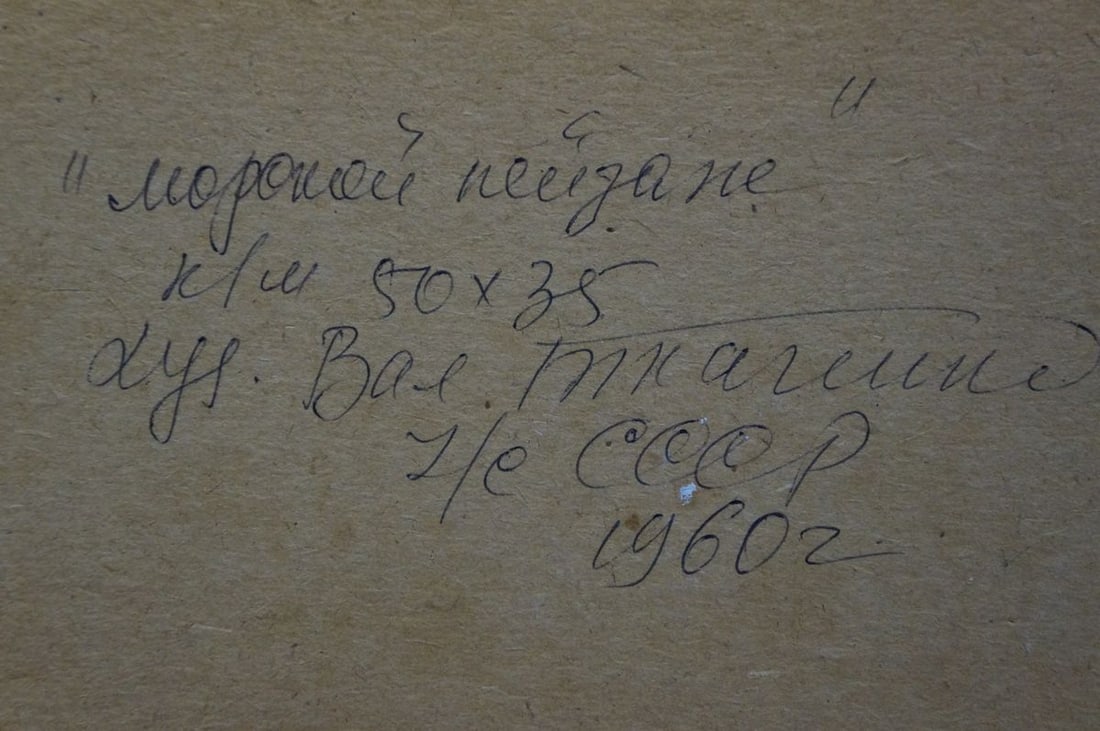 "морской пейзаж"
к/м 50х35
Худ. Вал Ткаченко
ч/с СССР
1960г